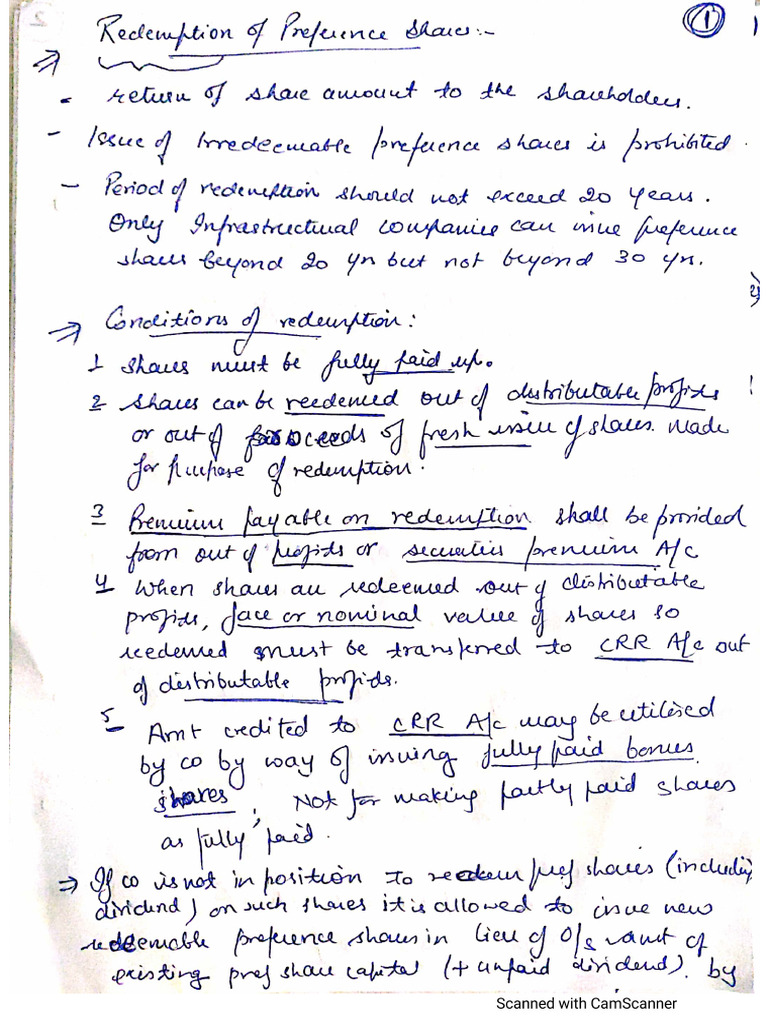 Redemption of Preference Shares:-
①
⇒
- return of share amount to the shareholders.
- Issue of Irredeemable preference shares is prohibited.
- Period of redemption should not exceed 20 years.
Only Infrastructual companies can issue preference
shares beyond 20 yr but not beyond 30 yr.
⇒ Conditions of redemption:
1 shares must be fully paid up.
2 shares can be reedemed out of distributable profits
or out of proceeds of fresh issue of shares made
for purpose of redemption.
3 Premium payable on redemption shall be provided
from out of profits or securities premium A/c
4 When shares are redeemed out of distributable
profits, face or nominal value of shares so
reedemed must be transferred to CRR A/c out
of distributable profits.
5 Amt credited to CRR A/c may be utilised
by co by way of issuing fully paid bonus
shares, Not for making partly paid shares
as fully paid.
⇒ If co is not in position to redeem pref shares (including
dividend) on such shares it is allowed to issue new
redeemable preference shares in lieu of O/s amt of
existing pref share capital (+ unpaid dividend). by
Scanned with CamScanner